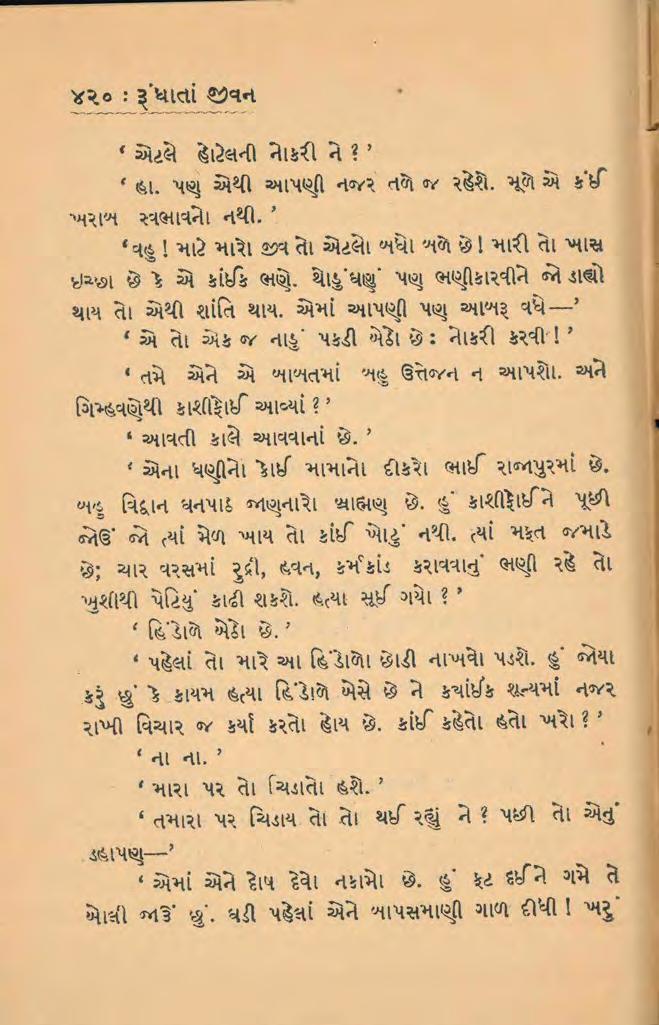 ૪૨૦ : રૂંધાતાં જીવન
‘ એટલે હોટેલની નોકરી ને ? ’
‘ હા. પણ એથી આપણી નજર તળે જ રહેશે. મૂળે એ કંઈ
ખરાબ સ્વભાવનો નથી. ’
‘ વહુ ! માટે મારો જીવ તો એટલો બધો બળે છે ! મારી તો ખાસ
ઇચ્છા છે કે એ કાંઈક ભણે. થોડુંઘણું પણ ભણીકારવીને જો ડાહ્યો
થાય તો એથી શાંતિ થાય. એમાં આપણી પણ આબરૂ વધે—’
‘ એ તો એક જ નાડું પકડી બેઠો છે : નોકરી કરવી ! ’
‘ તમે એને એ બાબતમાં બહુ ઉત્તેજન ન આપશો. અને
ગિમ્હવણેથી કાશીફોઈ આવ્યાં ? ’
‘ આવતી કાલે આવવાનાં છે. ’
‘ એના ધણીનો કોઈ મામાનો દીકરો ભાઈ રાજાપુરમાં છે.
બહુ વિદ્વાન ઘનપાઠ જાણનારો બ્રાહ્મણ છે. હું કાશીફોઈને પૂછી
જોઉં જો ત્યાં મેળ ખાય તો કાંઈ ખોટું નથી. ત્યાં મફત જમાડે
છે; ચાર વરસમાં રુદ્રી, હવન, કર્મકાંડ કરાવવાનું ભણી રહે તો
ખુશીથી પેટિયું કાઢી શકશે. હત્યા સૂઈ ગયો ? ’
‘ હિંડોળે બેઠો છે. ’
‘ પહેલાં તો મારે આ હિંડોળો છોડી નાખવો પડશે. હું જોયા
કરું છું કે કાયમ હત્યા હિંડોળે બેસે છે ને કયાંઈક શૂન્યમાં નજર
રાખી વિચાર જ કર્યા કરતો હોય છે. કાંઈ કહેતો હતો ખરો ? ’
‘ ના ના. ’
‘ મારા પર તો ચિડાતો હશે. ’
‘ તમારા પર ચિડાય તો તો થઈ રહ્યું ને ? પછી તો એનું
ડહાપણ—’
‘ એમાં એને દોષ દેવો નકામો છે. હું ફટ દઈને ગમે તે
બોલી જાઉં છું. ઘડી પહેલાં એને બાપસમાણી ગાળ દીધી ! ખરું